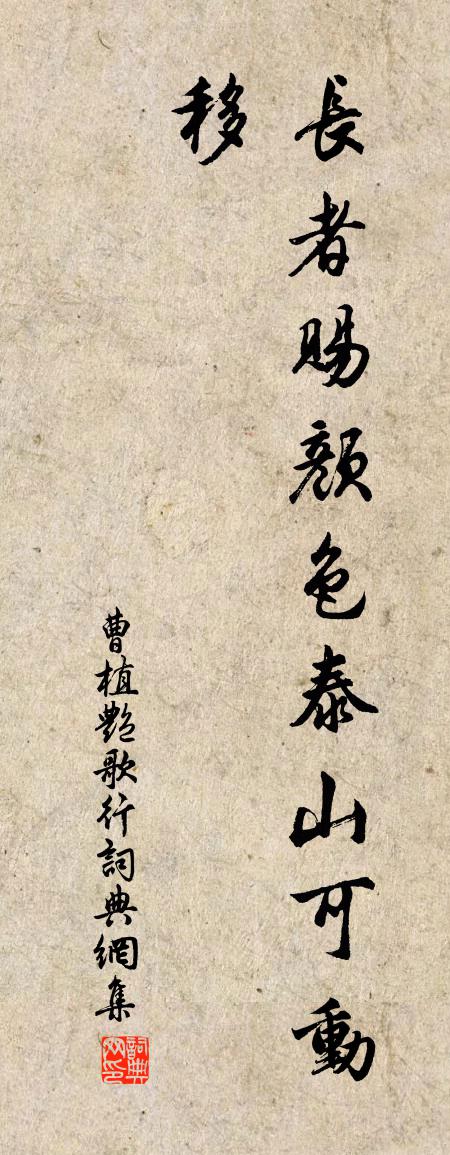 長者賜顏色泰山可動
移
曹植艷歌行詞典網集
詞典網印